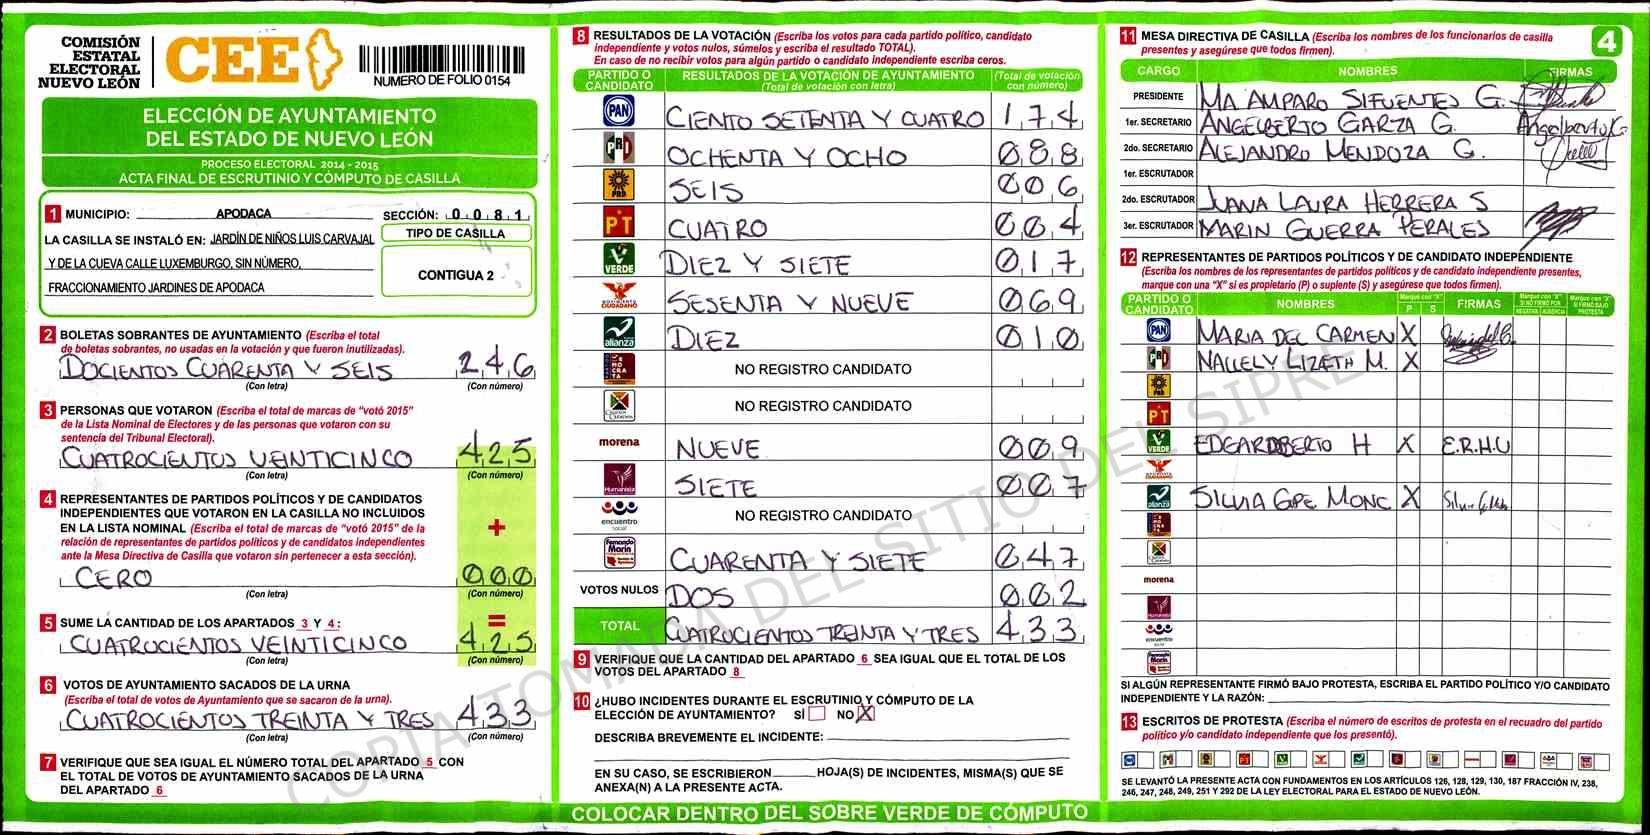 COMISIÓN
ESTATAL
ELECTORAL
NUEVO LEÓN
CEE
NUMERO DE FOLIO 0154
ELECCIÓN DE AYUNTAMIENTO
DEL ESTADO DE NUEVO LEÓN
PROCESO ELECTORAL 2014 - 2015
ACTA FINAL DE ESCRUTINIO Y CÓMPUTO DE CASILLA
1 MUNICIPIO: APODACA SECCIÓN: 0 0 8 1
LA CASILLA SE INSTALÓ EN: JARDÍN DE NIÑOS LUIS CARVAJAL
Y DE LA CUEVA CALLE LUXEMBURGO, SIN NÚMERO,
FRACCIONAMIENTO JARDINES DE APODACA
TIPO DE CASILLA
CONTIGUA 2
2 BOLETAS SOBRANTES DE AYUNTAMIENTO (Escriba el total
de boletas sobrantes, no usadas en la votación y que fueron inutilizadas).
DOCIENTOS CUARENTA Y SEIS 2 4 6
(Con letra) (Con número)
3 PERSONAS QUE VOTARON (Escriba el total de marcas de "votó 2015"
de la Lista Nominal de Electores y de las personas que votaron con su
sentencia del Tribunal Electoral).
CUATROCIENTOS VEINTICINCO 4 2 5
(Con letra) (Con número)
4 REPRESENTANTES DE PARTIDOS POLÍTICOS Y DE CANDIDATOS
INDEPENDIENTES QUE VOTARON EN LA CASILLA NO INCLUIDOS
EN LA LISTA NOMINAL (Escriba el total de marcas de "votó 2015" de la
relación de representantes de partidos políticos y de candidatos independientes
ante la Mesa Directiva de Casilla que votaron sin pertenecer a esta sección).
+
CERO 0 0 0
(Con letra) (Con número)
5 SUME LA CANTIDAD DE LOS APARTADOS 3 Y 4: =
CUATROCIENTOS VEINTICINCO 4 2 5
(Con letra) (Con número)
6 VOTOS DE AYUNTAMIENTO SACADOS DE LA URNA
(Escriba el total de votos de Ayuntamiento que se sacaron de la urna).
CUATROCIENTOS TREINTA Y TRES 4 3 3
(Con letra) (Con número)
7 VERIFIQUE QUE SEA IGUAL EL NÚMERO TOTAL DEL APARTADO 5 CON
EL TOTAL DE VOTOS DE AYUNTAMIENTO SACADOS DE LA URNA
DEL APARTADO 6
8 RESULTADOS DE LA VOTACIÓN (Escriba los votos para cada partido político, candidato
independiente y votos nulos, súmelos y escriba el resultado TOTAL).
En caso de no recibir votos para algún partido o candidato independiente escriba ceros.
PARTIDO O CANDIDATO RESULTADOS DE LA VOTACIÓN DE AYUNTAMIENTO (Total de votación con letra) (Total de votación con número)
PAN CIENTO SETENTA Y CUATRO 1 7 4
PRI OCHENTA Y OCHO 0 8 8
PRD SEIS 0 0 6
PT CUATRO 0 0 4
VERDE DIEZ Y SIETE 0 1 7
CIUDADANO SESENTA Y NUEVE 0 6 9
alianza DIEZ 0 1 0
NO REGISTRO CANDIDATO
NO REGISTRO CANDIDATO
morena NUEVE 0 0 9
Humanista SIETE 0 0 7
encuentro social NO REGISTRO CANDIDATO
Fernando Marín CUARENTA Y SIETE 0 4 7
VOTOS NULOS DOS 0 0 2
TOTAL CUATROCIENTOS TREINTA Y TRES 4 3 3
9 VERIFIQUE QUE LA CANTIDAD DEL APARTADO 6 SEA IGUAL QUE EL TOTAL DE LOS
VOTOS DEL APARTADO 8
10 ¿HUBO INCIDENTES DURANTE EL ESCRUTINIO Y CÓMPUTO DE LA
ELECCIÓN DE AYUNTAMIENTO? SÍ NO X
DESCRIBA BREVEMENTE EL INCIDENTE:
EN SU CASO, SE ESCRIBIERON HOJA(S) DE INCIDENTES, MISMA(S) QUE SE
ANEXA(N) A LA PRESENTE ACTA.
COLOCAR DENTRO DEL SOBRE VERDE DE CÓMPUTO
11 MESA DIRECTIVA DE CASILLA (Escriba los nombres de los funcionarios de casilla
presentes y asegúrese que todos firmen).
4
CARGO NOMBRES FIRMAS
PRESIDENTE MA AMPARO SIFUENTES G.
1er. SECRETARIO ANGELBERTO GARZA G. Angelberto G
2do. SECRETARIO ALEJANDRO MENDOZA G.
1er. ESCRUTADOR
2do. ESCRUTADOR JUANA LAURA HERRERA S
3er. ESCRUTADOR MARIN GUERRA PERALES
12 REPRESENTANTES DE PARTIDOS POLÍTICOS Y DE CANDIDATO INDEPENDIENTE
(Escriba los nombres de los representantes de partidos políticos y de candidato independiente presentes,
marque con una "X" si es propietario (P) o suplente (S) y asegúrese que todos firmen).
PARTIDO O CANDIDATO NOMBRES Marque con "X" P S FIRMAS Marque con "X" SI NO FIRMÓ POR NEGATIVA AUSENCIA Marque con "X" SI FIRMÓ BAJO PROTESTA
PAN MARIA DEL CARMEN X
PRI NALLELY LIZETH M. X
PRD
PT
VERDE EDGARDBERTO H X E.R.H.U
alianza SILVIA GPE MONC X
morena
SI ALGÚN REPRESENTANTE FIRMÓ BAJO PROTESTA, ESCRIBA EL PARTIDO POLÍTICO Y/O CANDIDATO
INDEPENDIENTE Y LA RAZÓN:
13 ESCRITOS DE PROTESTA (Escriba el número de escritos de protesta en el recuadro del partido
político y/o candidato independiente que los presentó).
SE LEVANTÓ LA PRESENTE ACTA CON FUNDAMENTOS EN LOS ARTÍCULOS 126, 128, 129, 130, 187 FRACCIÓN IV, 238,
246, 247, 248, 249, 251 Y 292 DE LA LEY ELECTORAL PARA EL ESTADO DE NUEVO LEÓN.
COPIA TOMADA DEL SITIO DEL SIPRE